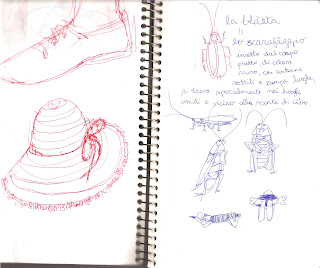 la blatta
lo scarafaggio
insetto dal corpo
piatto di colore
scuro, con antenne
sottili e zampe lunghe,
si trova specialmente nei luoghi
umidi e vicino alle scorte di cibo